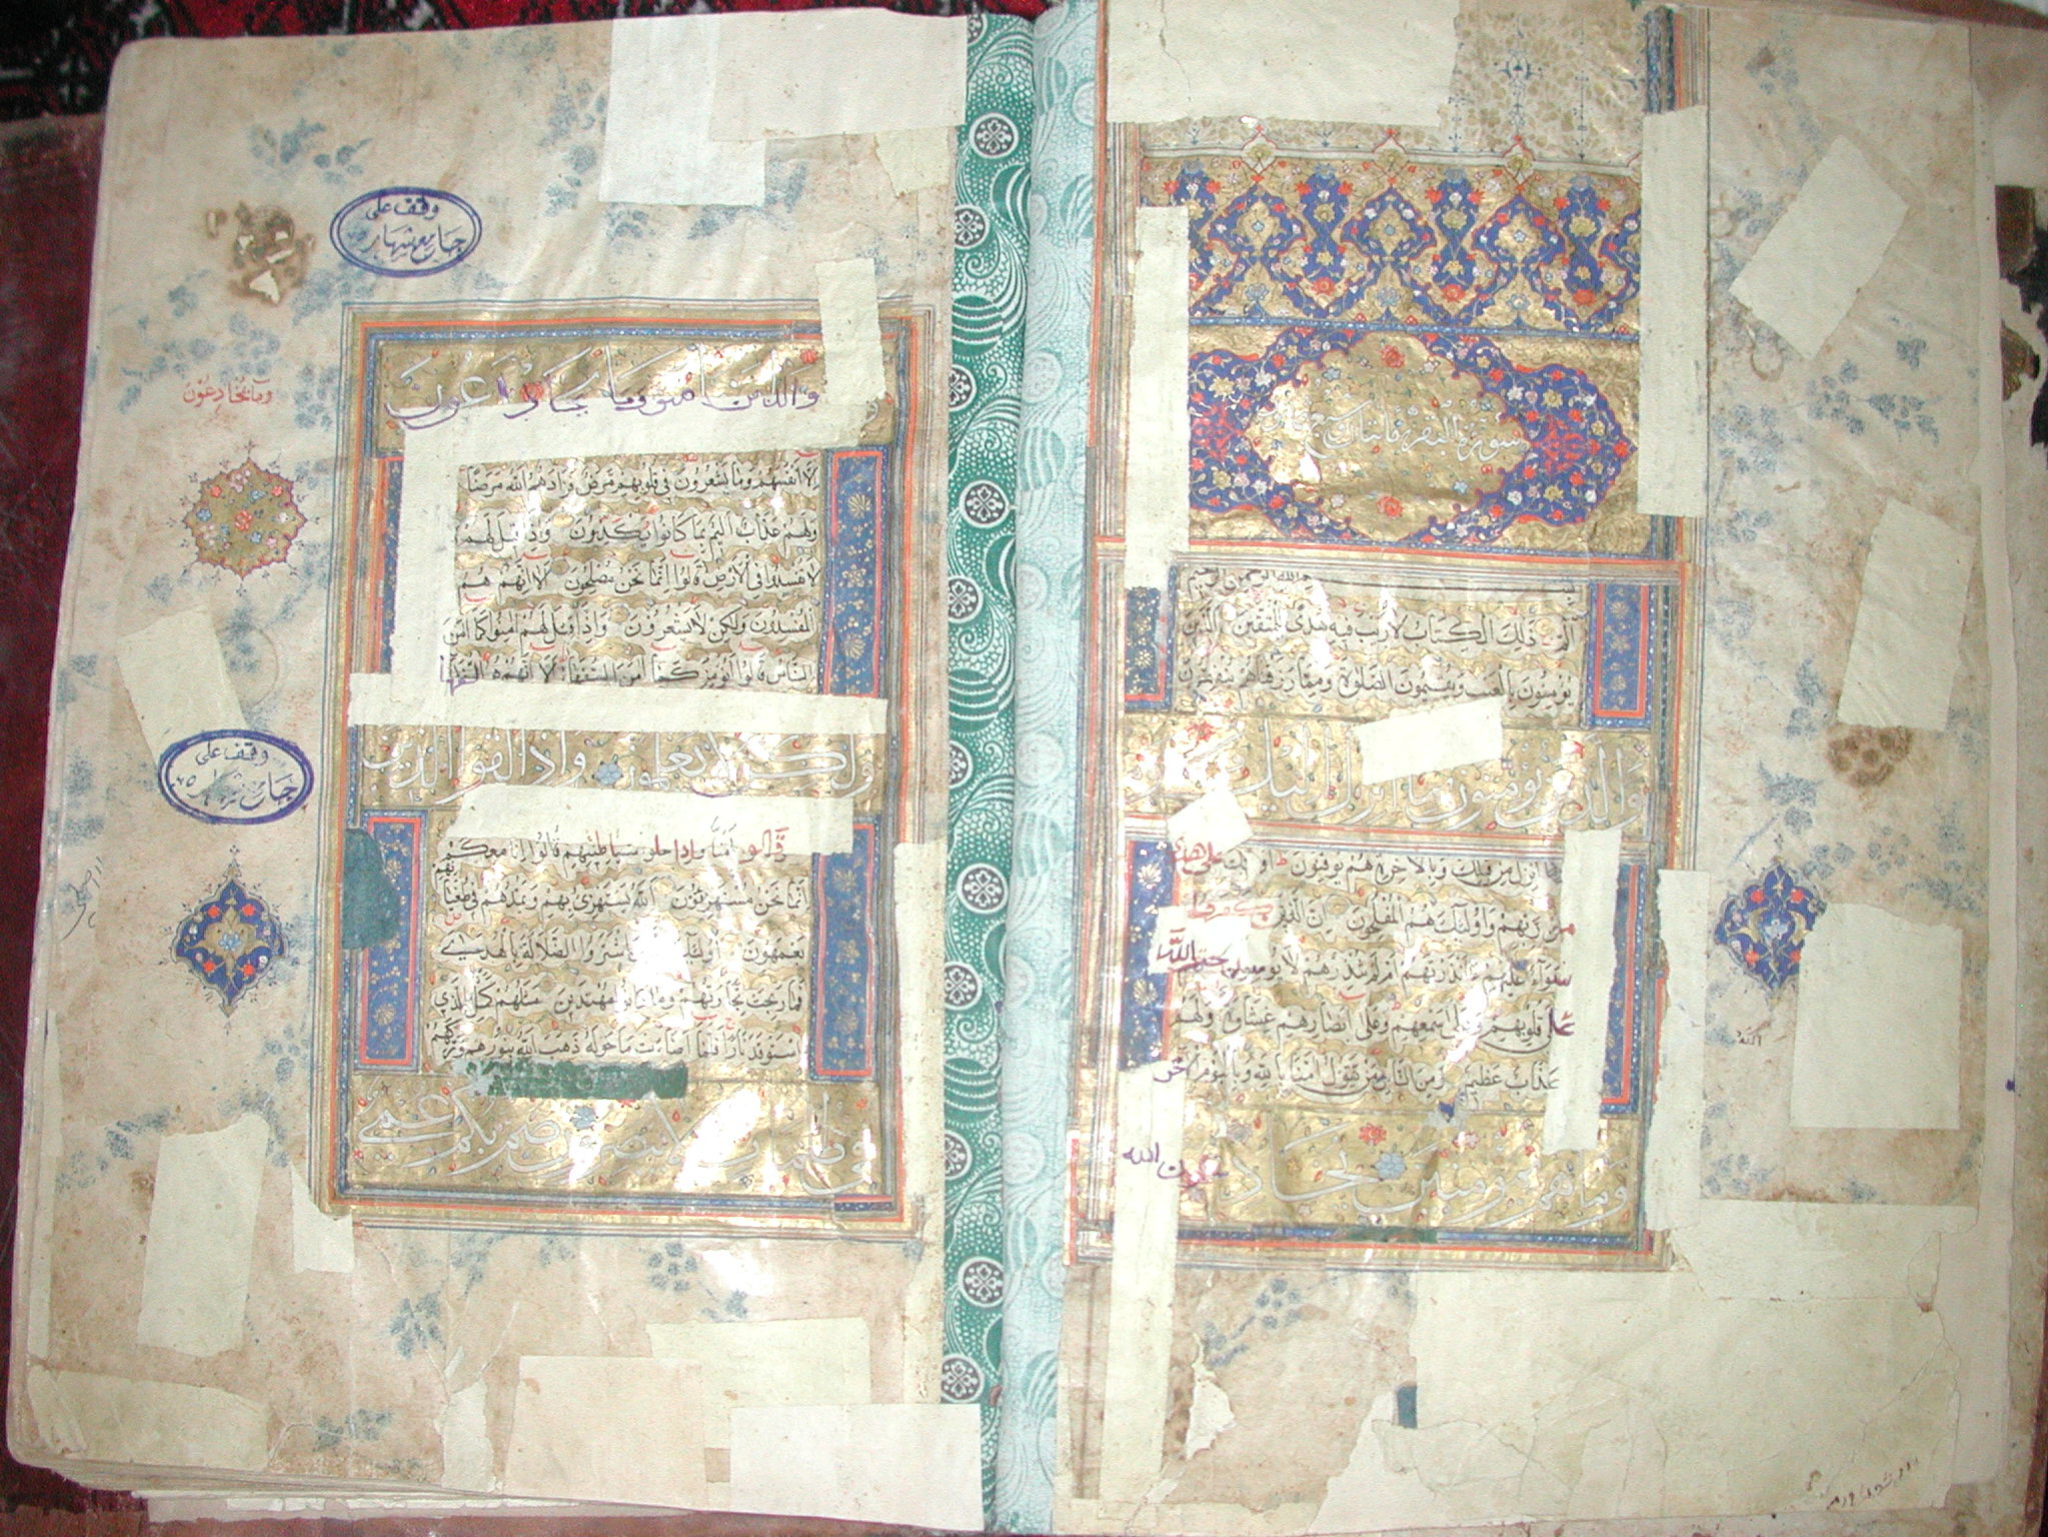 سورة البقرة مائتان
بسم الله الرحمن الرحيم
الم ذلك الكتاب لا ريب فيه هدى للمتقين الذين
يؤمنون بالغيب ويقيمون الصلوة ومما رزقناهم ينفقون
والذين يؤمنون بما أنزل اليك
وما انزل من قبلك وبالاخرة هم يوقنون اولئك على هدى
من ربهم واولئك هم المفلحون ان الذين كفروا
سوآء عليهم ءانذرتهم ام لم تنذرهم لا يؤمنون ختم الله
على قلوبهم وعلى سمعهم وعلى ابصارهم غشاوة ولهم
عذاب عظيم ومن الناس من يقول امنا بالله وباليوم الاخر
وما هم بمؤمنين يخادعون الله
الله
وقف على
جامع شهاب
وما يخادعون
والذين امنو وما يخادعون
الا انفسهم وما يشعرون في قلوبهم مرض فزادهم الله مرضا
ولهم عذاب اليم بما كانوا يكذبون واذا قيل لهم
لا تفسدوا في الارض قالوا انما نحن مصلحون الا انهم هم
المفسدون ولكن لا يشعرون واذا قيل لهم امنوا كما امن
الناس قالوا انؤمن كما امن السفهاء الا انهم هم السفهاء
ولكن لا يعلمون واذا لقوا الذين
وقف على
جامع شهاب
قالو امنا واذا خلو شياطينهم قالوا انا معكم
انما نحن مستهزؤن الله يستهزئ بهم ويمدهم في طغيانهم
يعمهون اولئك اشتروا الضلالة بالهدى
فما ربحت تجارتهم وما كانوا مهتدين مثلهم كمثل الذي
استوقد نارا فلما اضاءت ما حوله ذهب الله بنورهم وتركهم
في ظلمات لا يبصرون صم بكم عمي